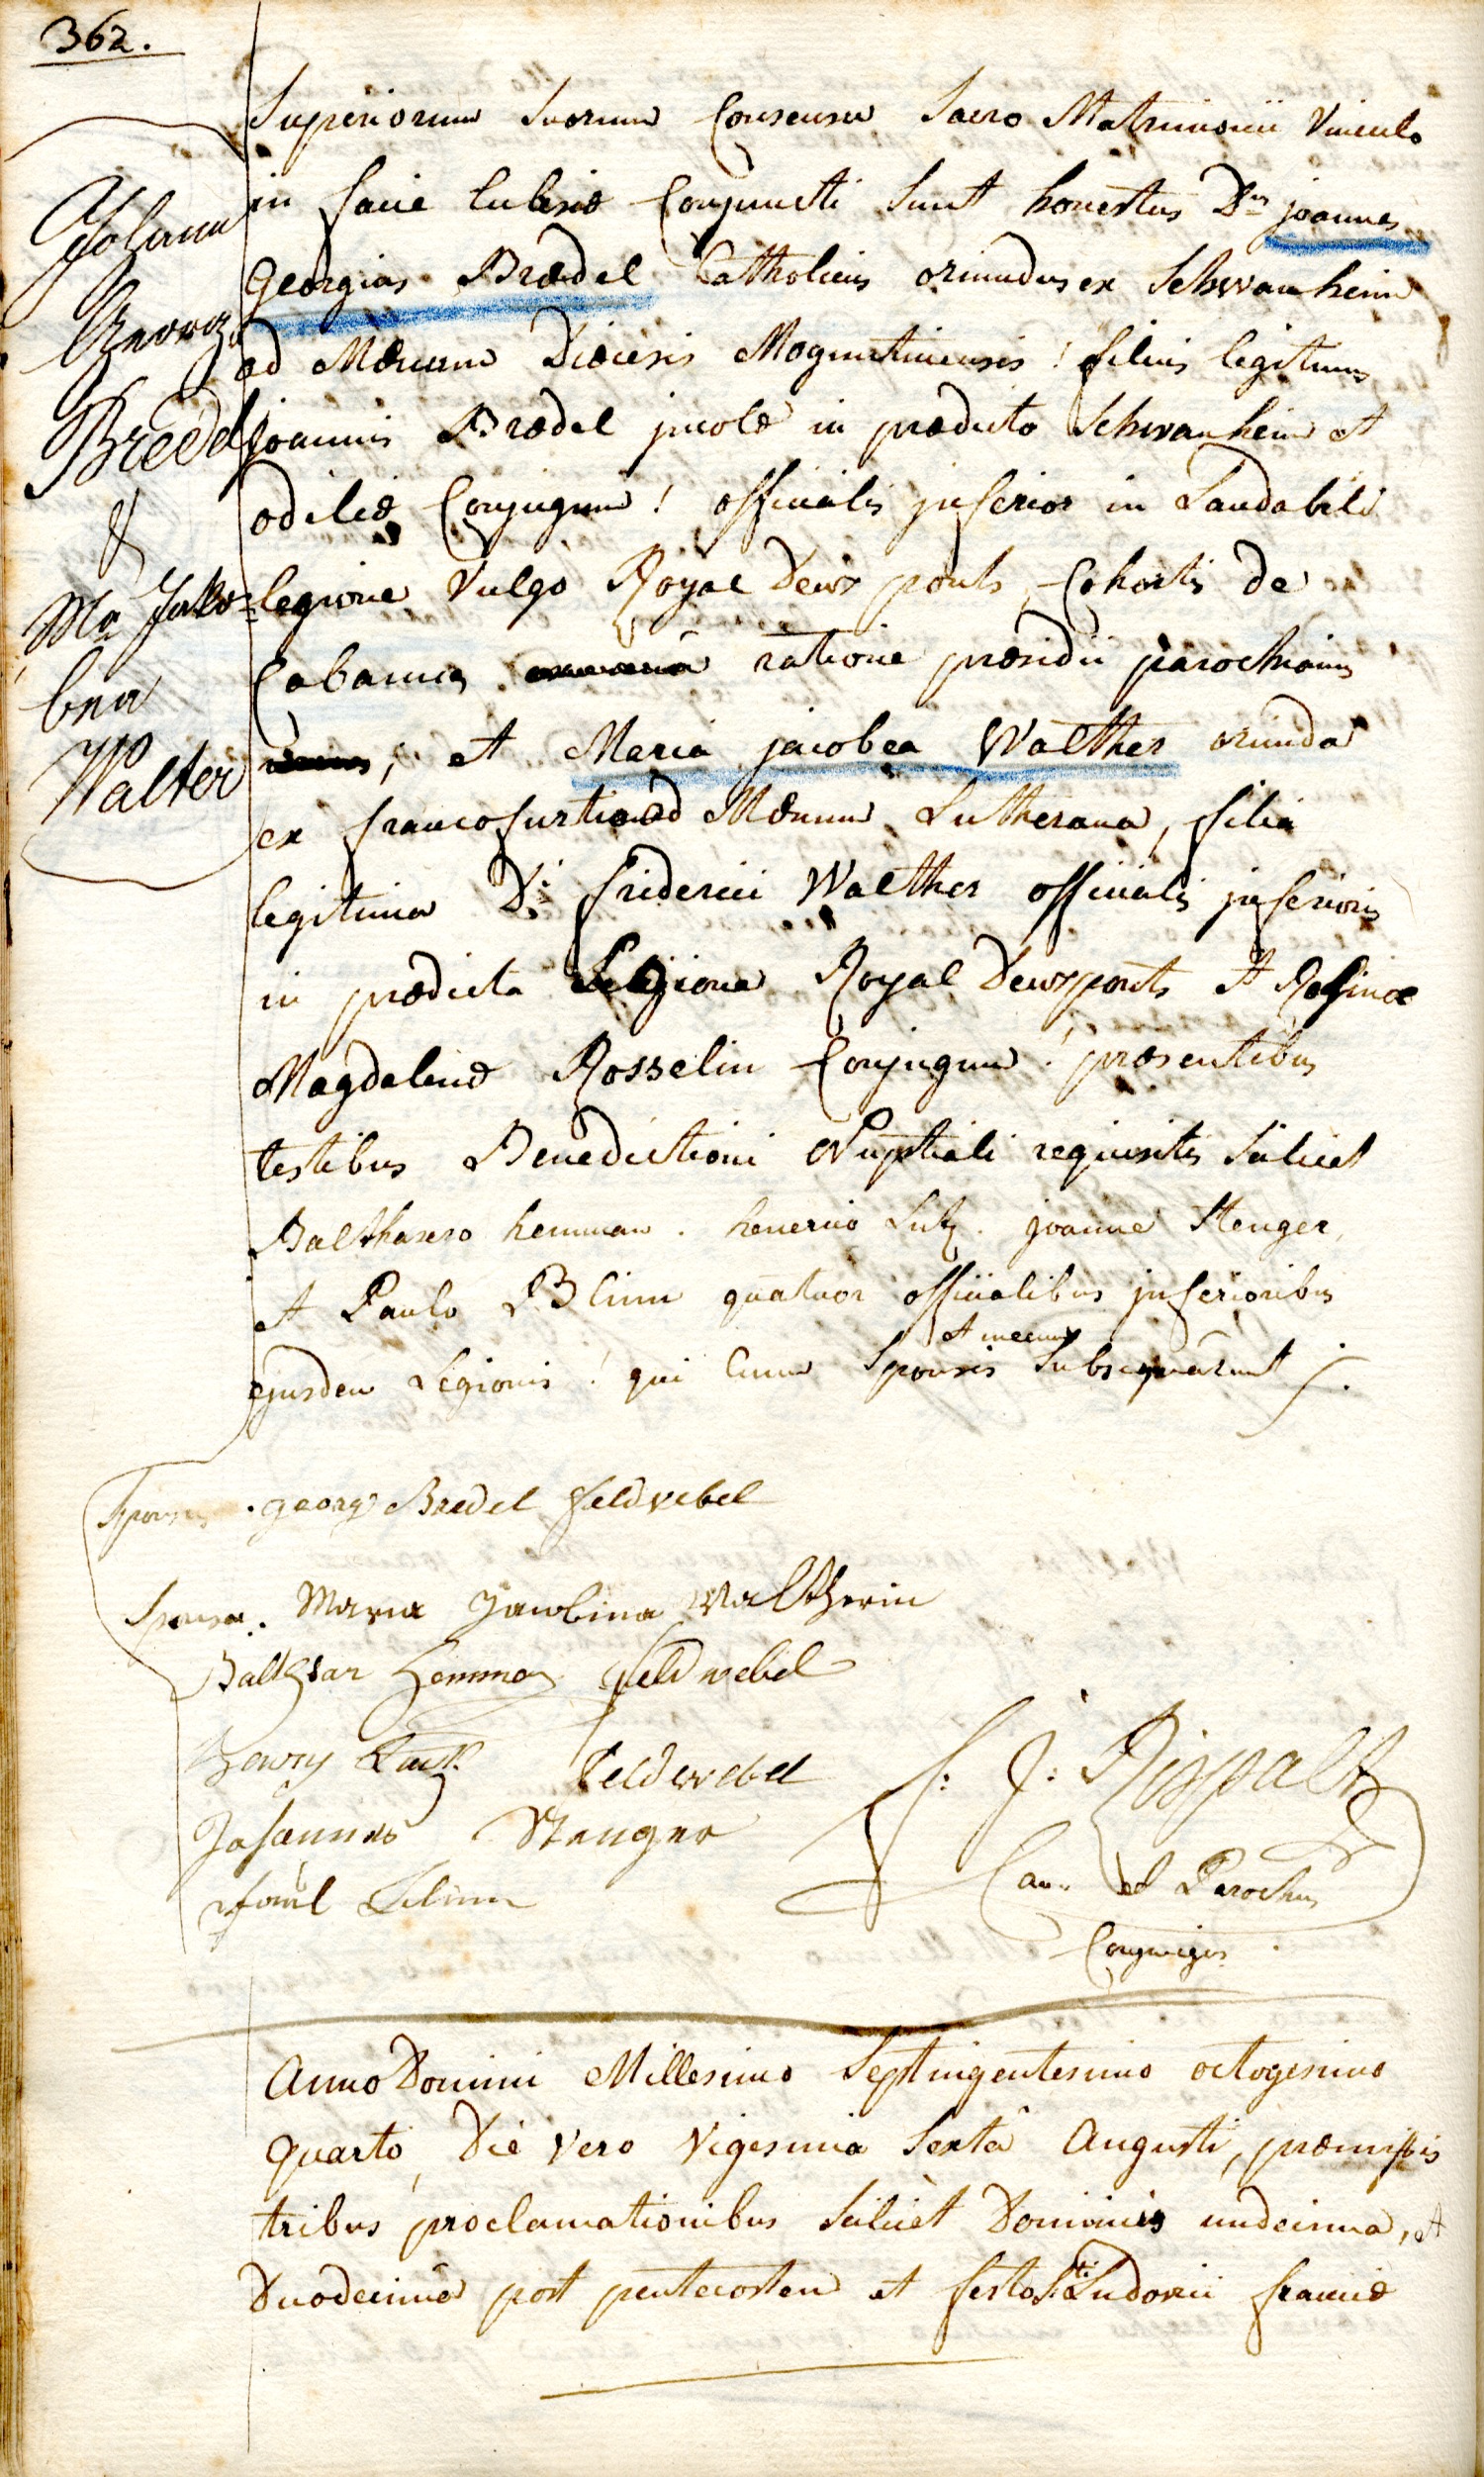 362.
Johann
Georg
Bredel
&
Ma Jako=
bea
Walter
Superiorum Suorum Consensu Sacro Matrimonii Vinculo
in facie Ecclesiæ Conjuncti Sunt honestus Dns joannes
Georgius Brædel Catholicus oriundus ex Schwanheim
ad Mœnum Diœcesis Moguntinensis ! filius legitimus
joannis Brædel jncolæ in prædicto Schwanheim et
odiliæ Conjugum ! officialis jnferior in Laudabili
legione Vulgo Royal Deux ponts Cohortis de
Cabannes ratione præsidii parochianus
; et Maria jacobea Walther oriunda
ex francofurti ad Mœnum Lutherana, filia
legitima Di friderici Walther officialis jnferioris
in prædicta Legione Royal Deuxponts et Rosinæ
Magdalenæ Rosselin Conjugum ! præsentibus
testibus Benedictioni Nuptiali requisitis Scilicet
Balthasaro hemman . henrico Lutz . joanne Stenger,
et Paulo Blum quatuor officialibus jnferioribus
et mecum
ejusdem Legionis ! qui Cum Sponsis Subsignarunt ;.
Sponsus . georg Bredel feldvebel
Sponsa . Maria Jacobina Waltherin
Balthsar Hemman feldwebel
Henry feldwebel
Johannes Stenger
Paul
f: J: Rispalt
Can. et Parochus
Conjungens .
Anno Domini Millesimo Septingentesimo octogesimo
quarto, Die vero Vigesima Sexta Augusti, præmissis
tribus proclamationibus Scilicet Dominicis undecima, et
Duodecima post pentecosten et festo Sti Ludovici franciæ